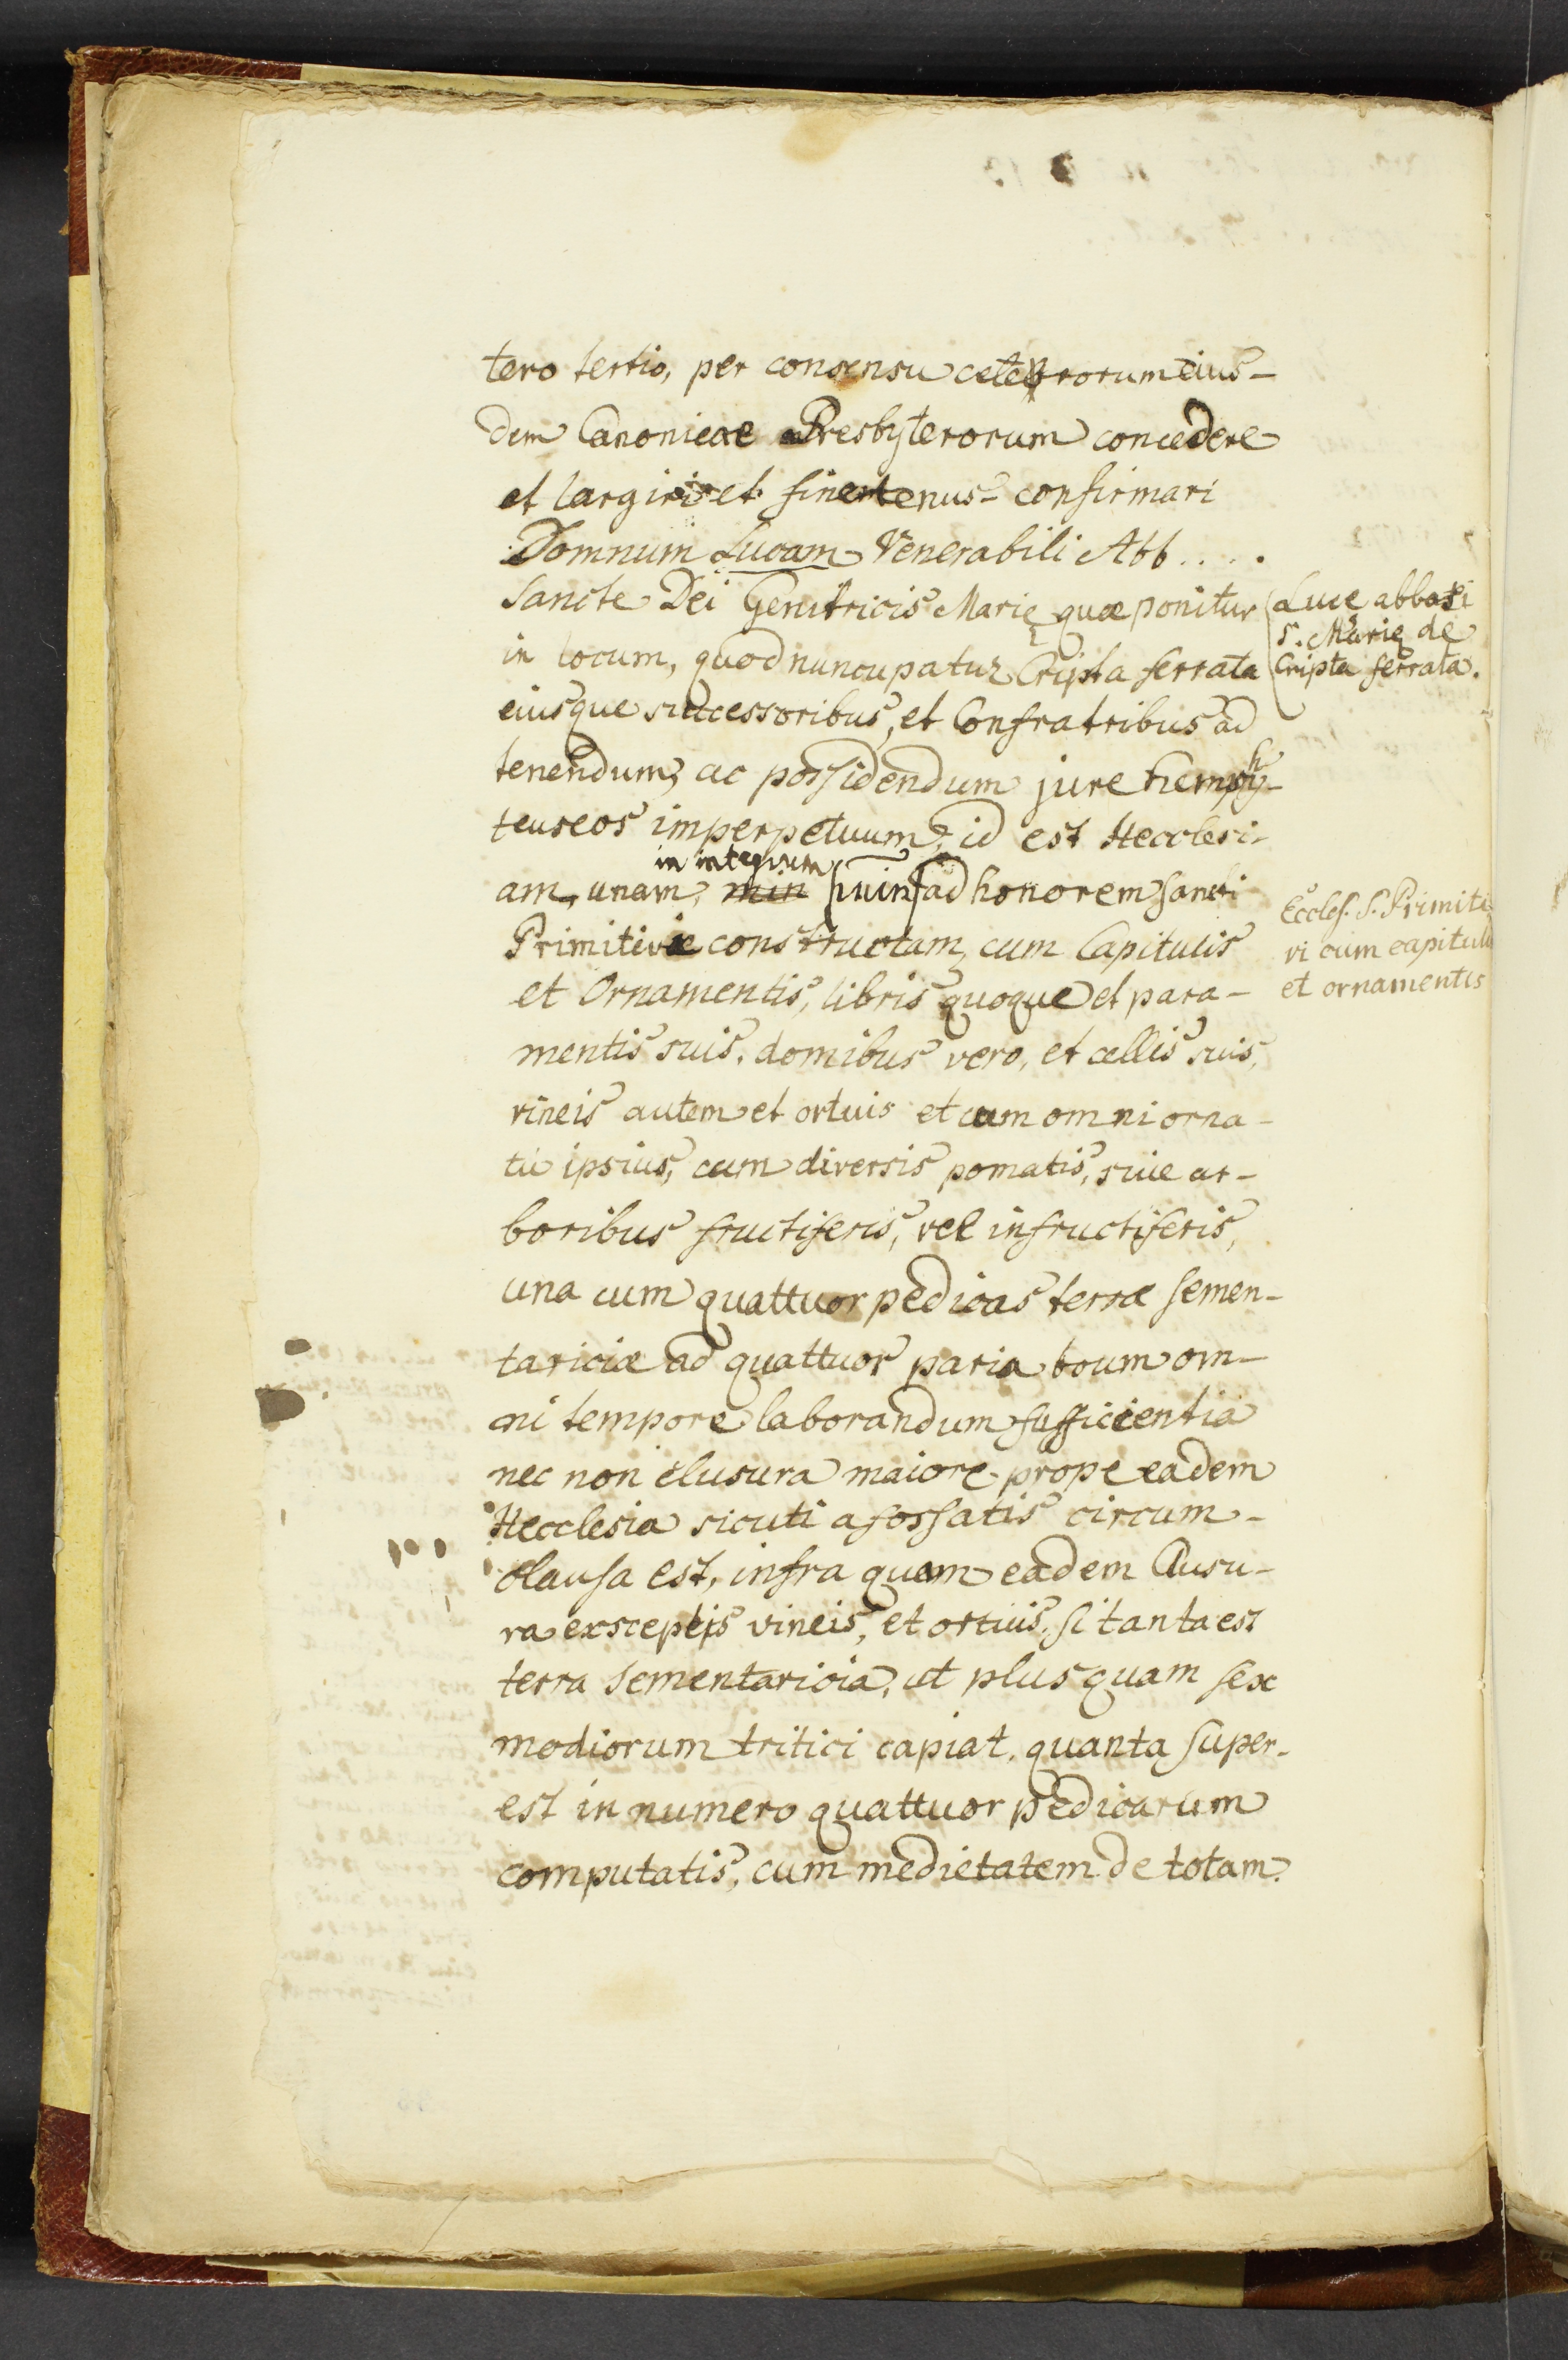 tero tertio, per consensu ceterorum eius-
dem Canonicae Presbyterorum concedere
et largiri et finetenus confirmari
Domnum Lucam Venerabili Abb....
Sancte Dei Genitricis Marię quae ponitur
in locum, quod nuncupatur Cripta ferrata
eiusque successoribus, et Confratribus ad
tenendum, ac possidendum jure hemphy-
teuseos imperpetuum, id est Hecclesi-
in integrum
am, unam, min ad honorem sancti
Primitivi constructam, cum Capitulis
et Ornamentis, libris quoque et para-
mentis suis, domibus vero, et cellis suis,
vineis autem et ortuis et cum omni orna-
tu ipsius, cum diversis pomatis, sive ar-
boribus fructiferis, vel infructiferis,
una cum quattuor pedicas terrae semen-
tariciae ad quattuor paria boum om-
ni tempore laborandum sufficientia
nec non clusura maiore prope eadem
Hecclesia sicuti a fossatis circum-
clausa est, infra quam eadem Clusu-
ra exsceptis vineis, et ortuis, si tanta est
terra sementaricia, ut plus quam sex
modiorum tritici capiat, quanta super-
est in numero quattuor pedicarum
computatis, cum medietatem de totam
Luce abbati
S. Marię de
Cripta ferrata.
Eccles. S. Primiti
vi cum capitulis
et ornamentis